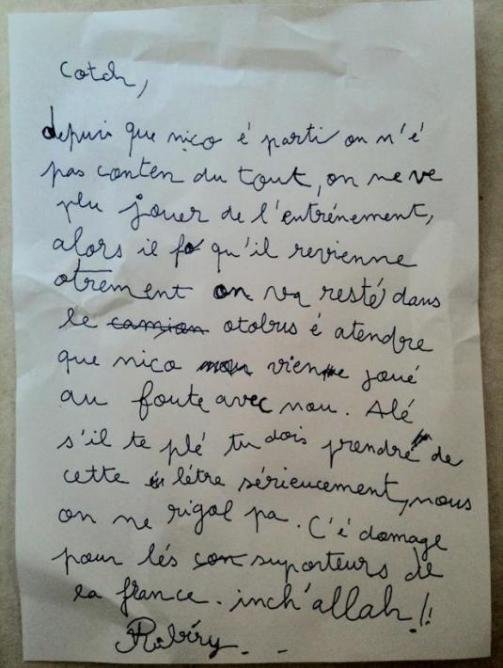 cotch,
depuis que nico é parti on n'é
pas conten du tout, on ne ve
plu jouer de l'entrénement,
alors il fo qu'il revienne
otrement on va resté dans
le camion otobus é atendre
que nico vienne joué
au foute avec nou. Alé
s'il te plé tu dois prendre de
cette létre sérieucement, nous
on ne rigol pa. C'é domage
pour lés con suporteurs de
la france. inch'allah!!
Ribéry..